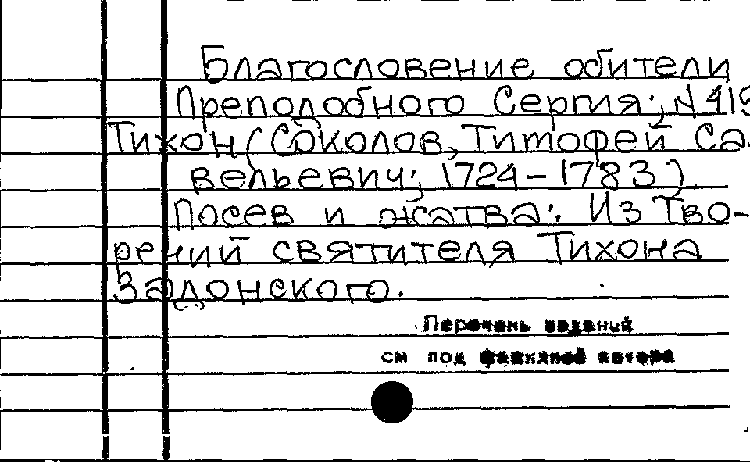 Благословение обители
Преподобного Сергия; N 419
Тихон (Соколов, Тимофей Са-
вельевич; 1724-1783).
Посев и жатва: Из Тво-
рений святителя Тихона
Задонского.
Перечень изданий
см под фамилией автора